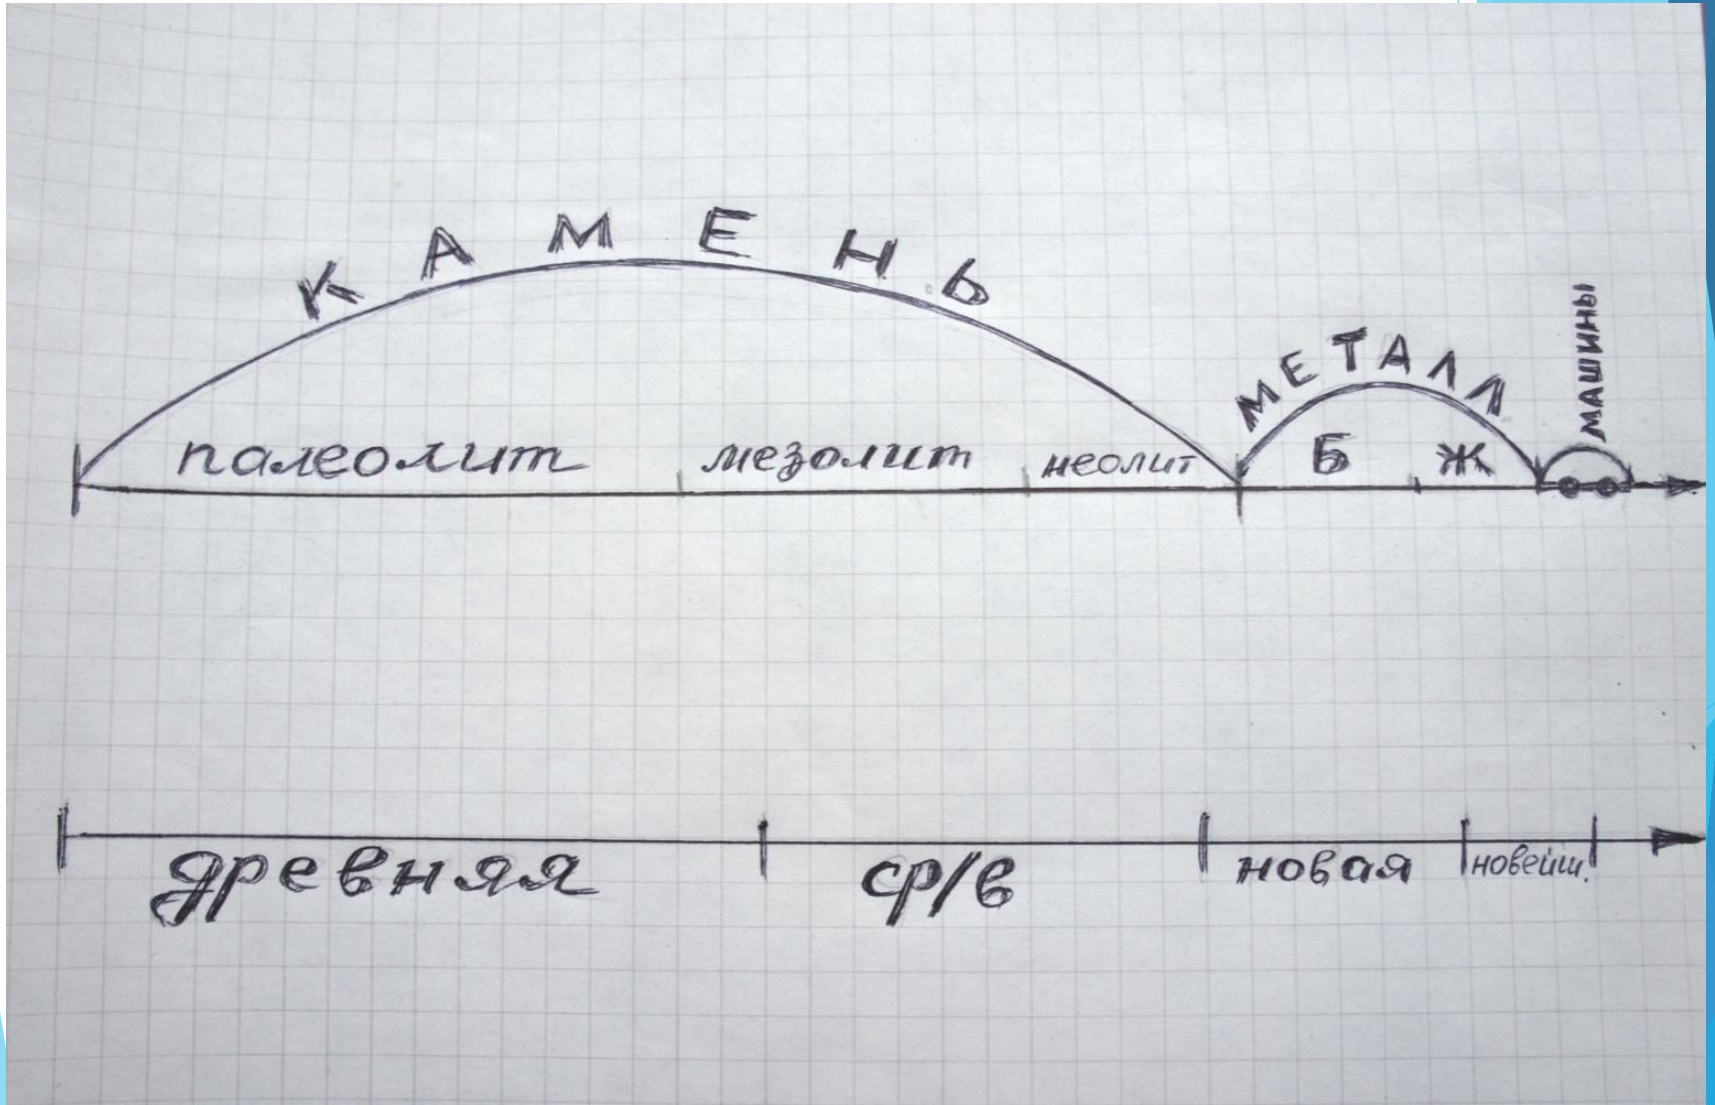 КАМЕНЬ
МЕТАЛЛ
МАШИНЫ
палеолит мезолит неолит Б Ж
древняя ср/в новая новейш.